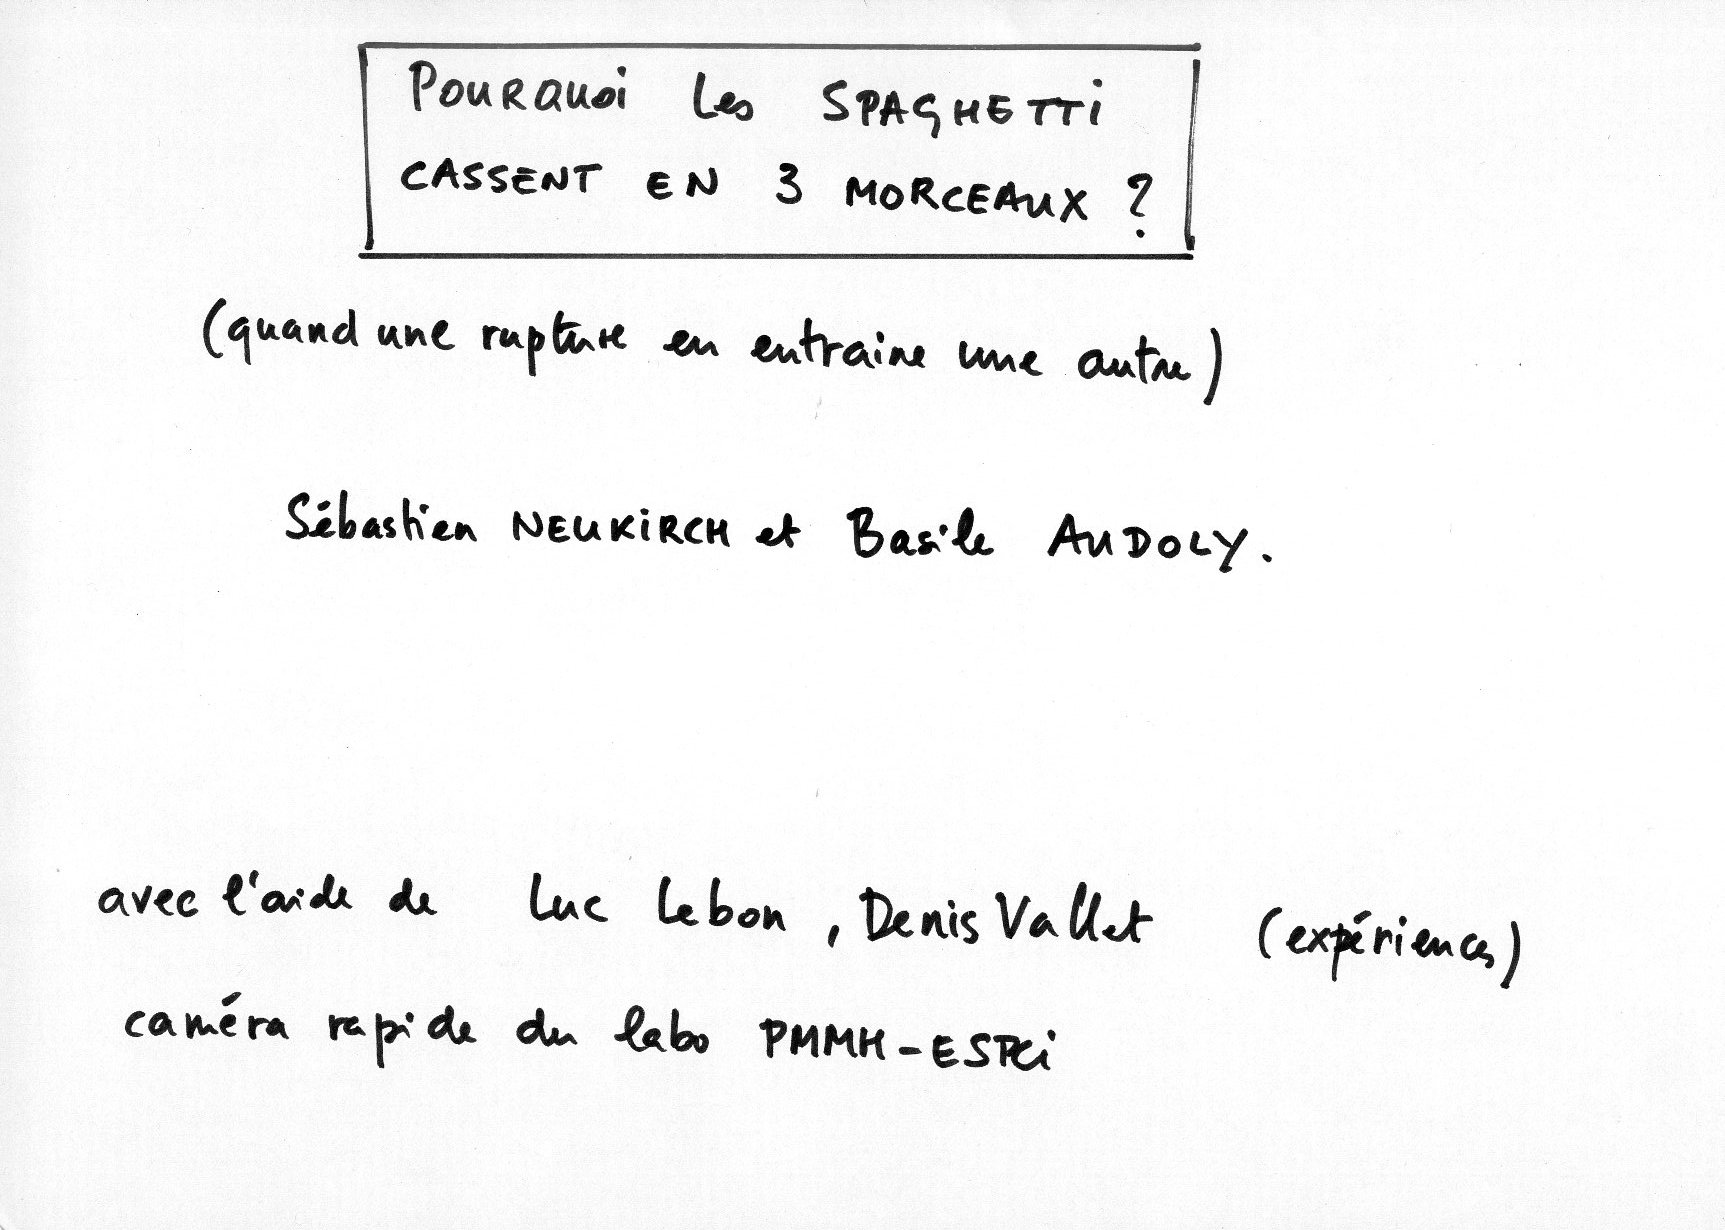 POURQUOi Les SPAGHETTi
CASSENT EN 3 MORCEAUX ?
(quand une rupture en entraine une autre)
Sébastien NEUKiRCH et Basile AUDOLY.
avec l'aide de Luc Lebon, Denis Vallet (expériences)
caméra rapide du labo PMMH-ESPCi